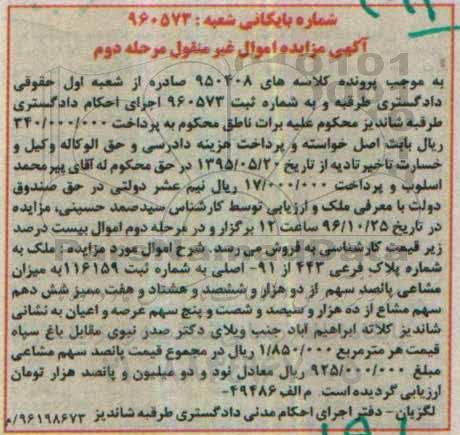 شماره بایگانی شعبه : ۹۶۰۵۷۳
آگهی مزایده اموال غیر منقول مرحله دوم
به موجب پرونده کلاسه های ۹۵۰۴۰۸ صادره از شعبه اول حقوقی
دادگستری طرقبه و به شماره ثبت ۹۶۰۵۷۳ اجرای احکام دادگستری
طرقبه شاندیز محکوم علیه برات ناطق محکوم به پرداخت ۳۴۰/۰۰۰/۰۰۰
ریال بابت اصل خواسته و پرداخت هزینه دادرسی و حق الوکاله وکیل و
خسارت تاخیر تادیه از تاریخ ۱۳۹۵/۰۵/۲۰ در حق محکوم له آقای پیرمحمد
اسلوب و پرداخت ۱۷/۰۰۰/۰۰۰ ریال نیم عشر دولتی در حق صندوق
دولت با معرفی ملک و ارزیابی توسط کارشناس سیدصمد حسینی، مزایده
در تاریخ ۹۶/۱۰/۲۵ ساعت ۱۲ برگزار و در مرحله دوم اموال بیست درصد
زیر قیمت کارشناسی به فروش می رسد. شرح اموال مورد مزایده: ملک به
شماره پلاک فرعی ۴۴۳ از ۹۱- اصلی به شماره ثبت ۱۱۶۱۵۹ به میزان
مشاعی پانصد سهم از دو هزار و ششصد و هشتاد و هفت ممیز شش دهم
سهم مشاع از ده هزار و سیصد و شصت و پنج سهم عرصه و اعیان به نشانی
شاندیز کلاته ابراهیم آباد جنب ویلای دکتر صدر نبوی مقابل باغ سپاه
قیمت هر مترمربع ۱/۸۵۰/۰۰۰ ریال در مجموع قیمت پانصد سهم مشاعی
مبلغ ۹۲۵/۰۰۰/۰۰۰ ریال معادل نود و دو میلیون و پانصد هزار تومان
ارزیابی گردیده است. م الف ۴۹۴۸۶-
لگزیان- دفتر اجرای احکام مدنی دادگستری طرقبه شاندیز ۹۶۱۹۸۶۷۳/م